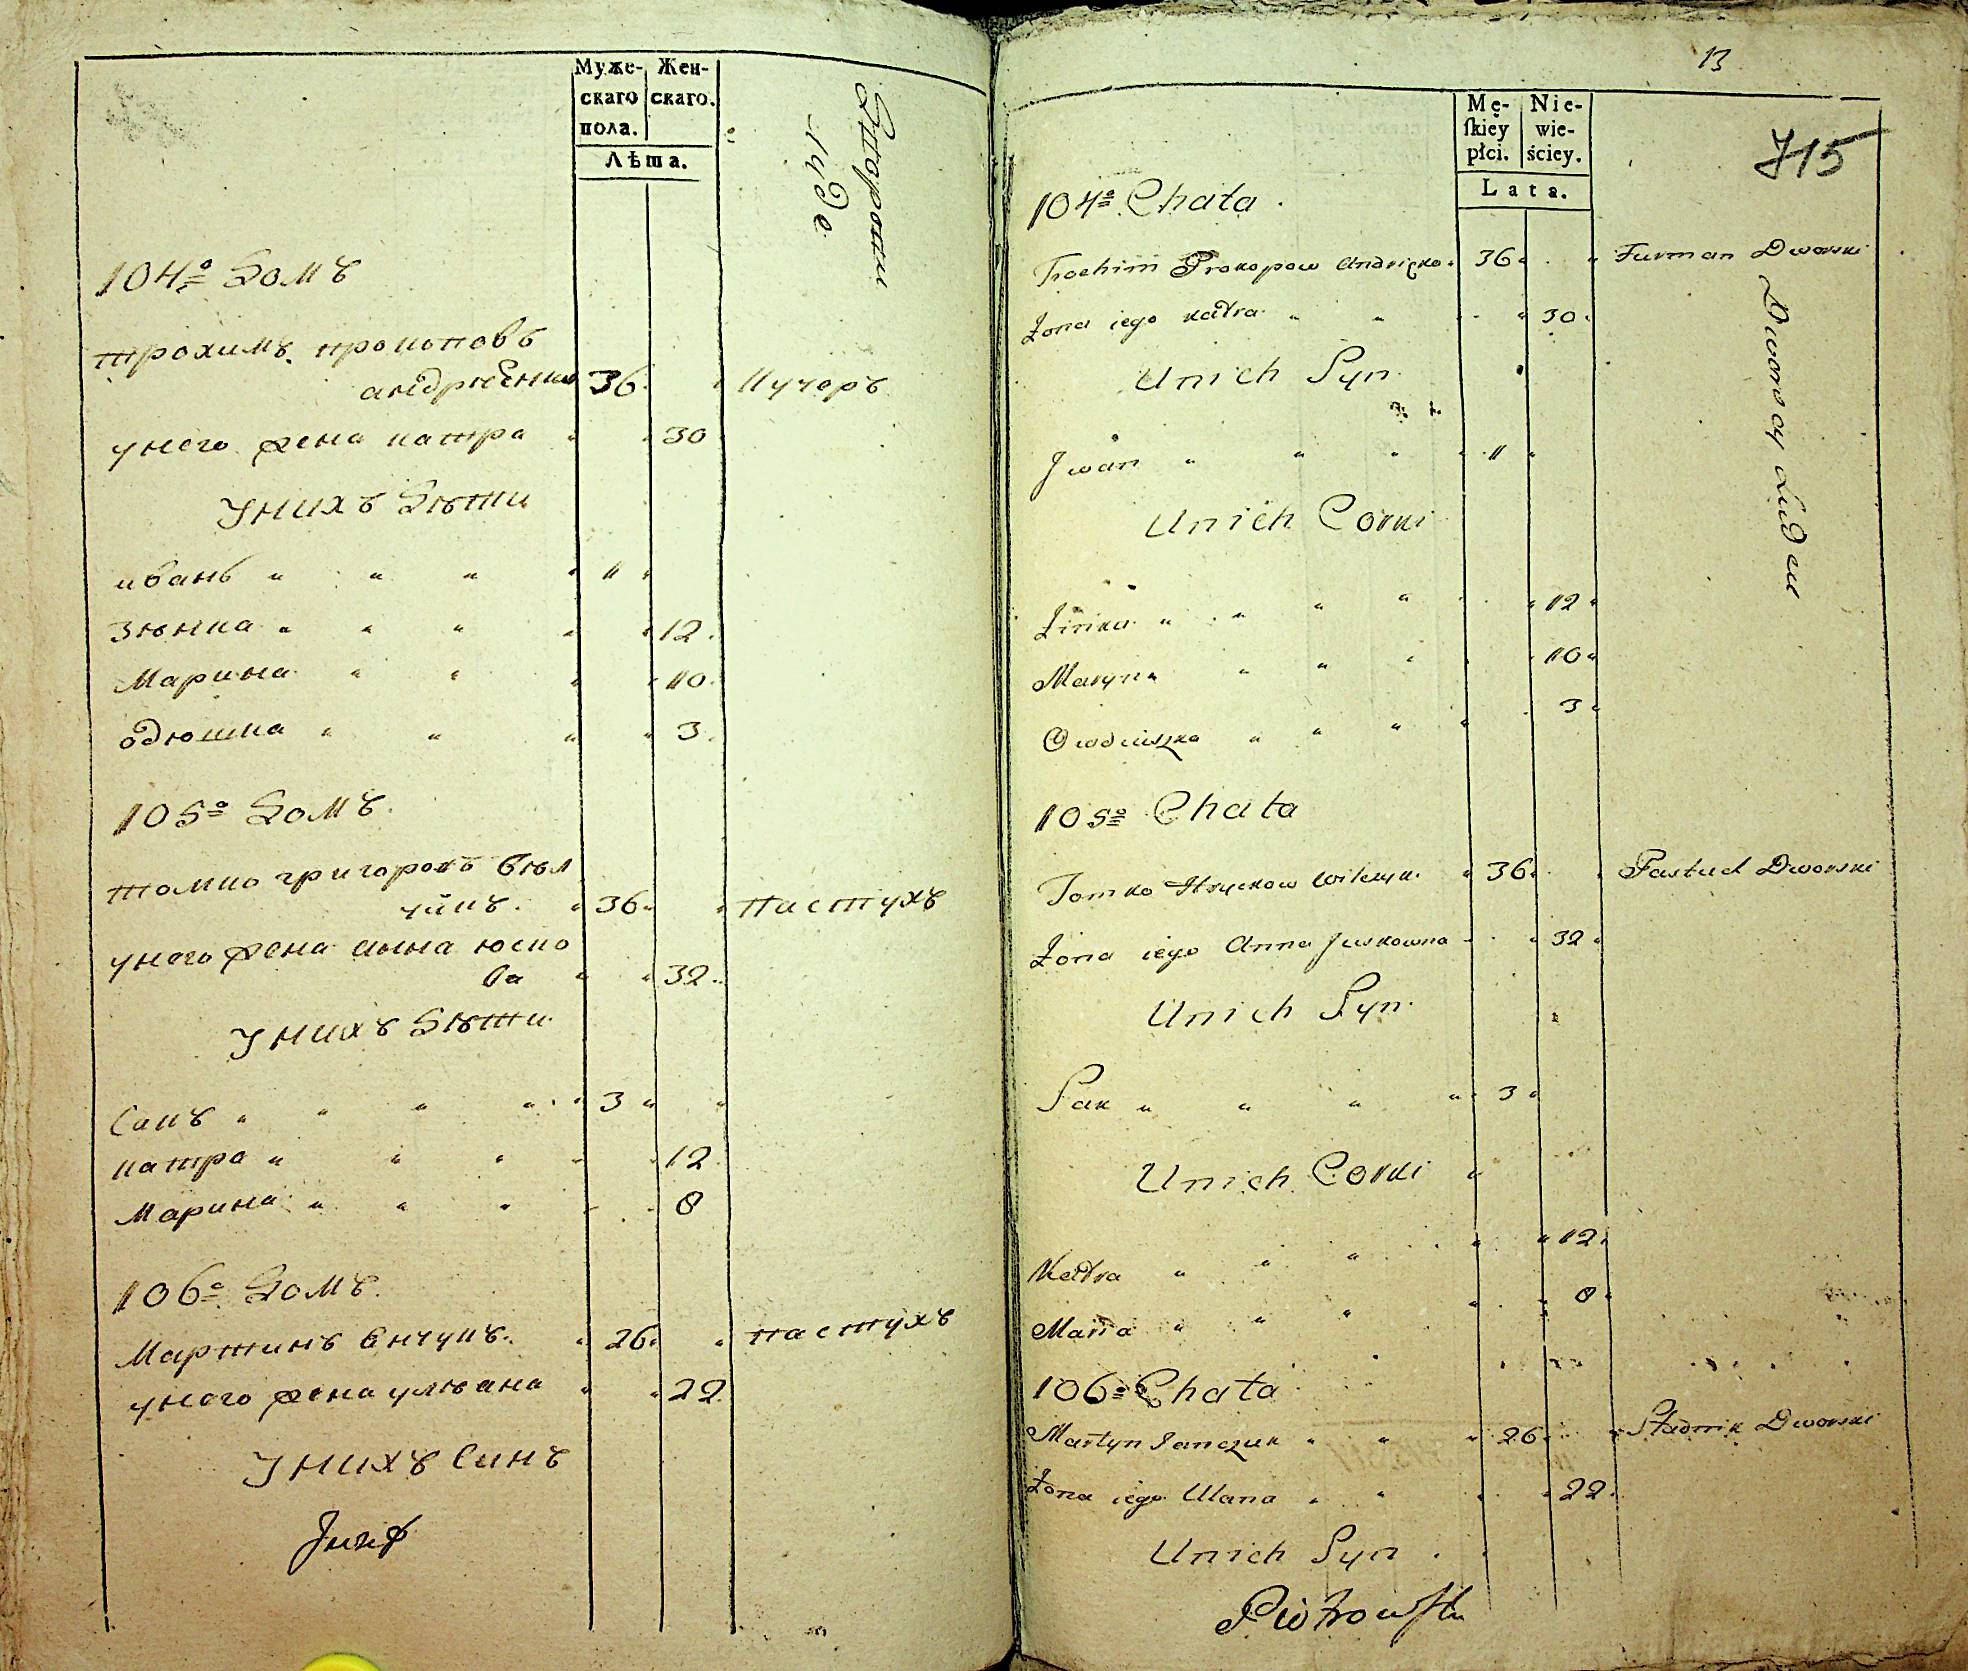 Муже-
скаго
пола.
Жен-
скаго.
Лѣта.
104º Домъ
трохимъ прокоповъ
36 Кучеръ
у него жена катра 30
У нихъ Дѣти
иванъ 11
Зѣнка 12
Марина 10
одюшка 3
105º Домъ
томко григоровъ вѣл
чукъ 36 Пастухъ
у него жена анна юско
ва 32
У нихъ Дѣти
Сакъ 3
катра 12
Марина 8
106º Домъ
Мартинъ 26 пастухъ
у него жена уляана 22
У нихъ Синъ
13
Mę-
ſkiey
płci.
Nie-
wie-
ściey.
Lata.
715
104º Chata
Trochim Prokopow 36 Furman Dworski
Żona iego Katra 30
Unich Syn
Iwan 11
Unich Corki
Zinka 12
Maryna 10
3
105º Chata
Tomko Hryckow 36 Pastuch Dworski
Żona iego Anna Juskowna 32
Unich Syn
Sak 3
Unich Corki
Katra 12
Maria 8
106º Chata
Martyn Janczuk 26 Stadnik Dworski
Żona iego Ulana 22
Unich Syn
Piotrowski